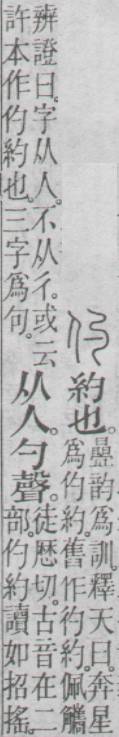 仢
約也。
曡韵爲訓。釋天曰。奔星
爲仢約。舊作彴約。佩觿
辨證曰。字从人。不从彳。或云
許本作仢約也。三字爲句。
从人。勺聲。
徒厯切。古音在二
部。仢約讀如招搖。